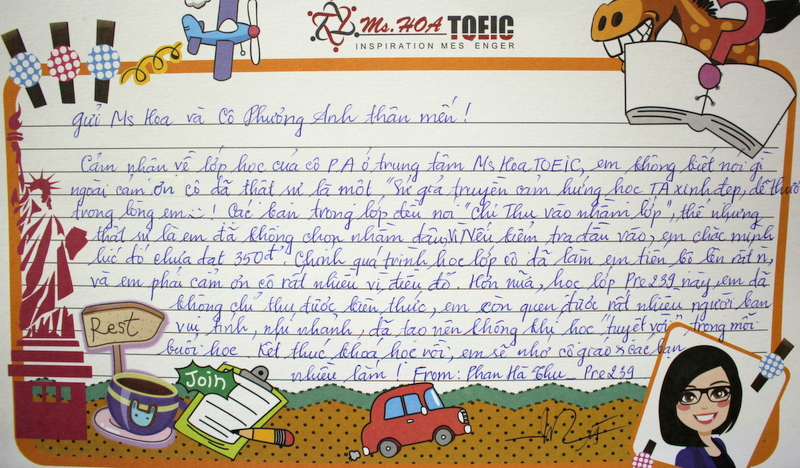 Ms. HOA TOEIC
INSPIRATION MES ENGER
gửi Ms Hoa và Cô Phương Anh thân mến!
Cảm nhận về lớp học của cô P.A ở trung tâm Ms Hoa TOEIC, em không biết nói gì
ngoài cảm ơn cô đã thật sự là một "Sứ giả truyền cảm hứng học TA xinh đẹp, dễ thươ
trong lòng em! Các bạn trong lớp đều nói "chị Thu vào nhầm lớp", thế nhưng
thật sự là em đã không chọn nhầm đâu, Vì Nếu kiểm tra đầu vào, em chắc mình
lúc đó chưa đạt 350đ. Chính quá trình học lớp cô đã làm em tiến bộ lên rất n,
và em phải cảm ơn cô rất nhiều vì điều đó. Hơn nữa, học lớp Pre239 này, em đã
không chỉ thu được kiến thức, em còn quen được rất nhiều người bạn
vui tính, nhí nhảnh, đã tạo nên không khí học "tuyệt vời" trong mỗi
buổi học. Kết thúc khoá học rồi, em sẽ nhớ cô giáo & các bạn
nhiều lắm! From: Phan Hà Thu _ Pre239
Rest
Join